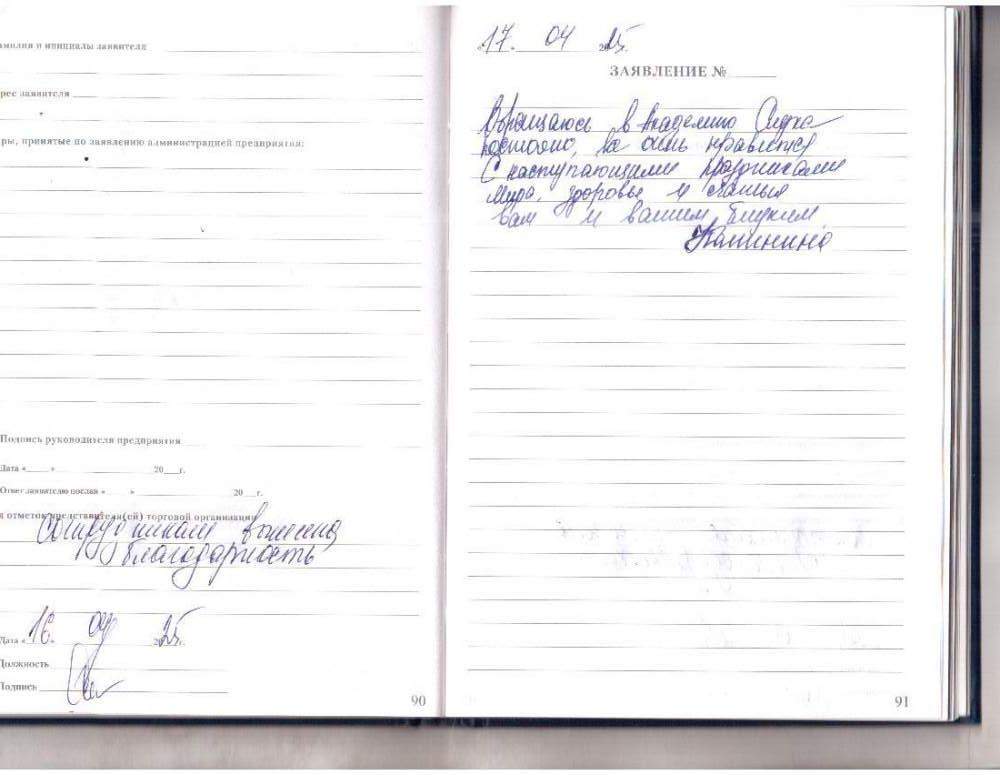 амилия и инициалы заявителя
рес заявителя
ры, принятые по заявлению администрацией предприятия:
Подпись руководителя предприятия
Дата « » 20 г.
Ответ заявителю послан « » 20 г.
я отметок представителя(ей) торговой организации
Сотрудникам вынесена
благодарность
Дата « 16. 04 2025г.
Должность
Подпись
90
«17. 04 2025.
ЗАЯВЛЕНИЕ №
Обращаюсь в Академию
очень нравится
С наступающими праздниками
Мира, здоровье и счастья
вам и вашим близким
Калинина
91